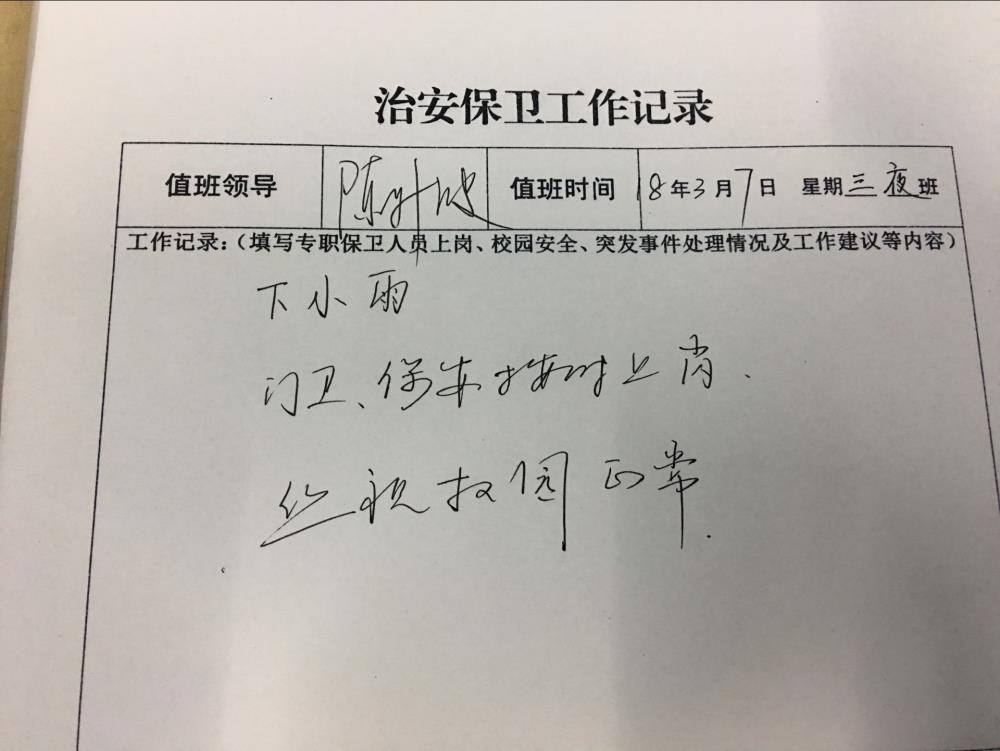 治安保卫工作记录
值班领导 陈 值班时间 18年3月7日 星期三夜班
工作记录:(填写专职保卫人员上岗、校园安全、突发事件处理情况及工作建议等内容)
下小雨
门卫、保安按时上岗.
巡视校园 正常.